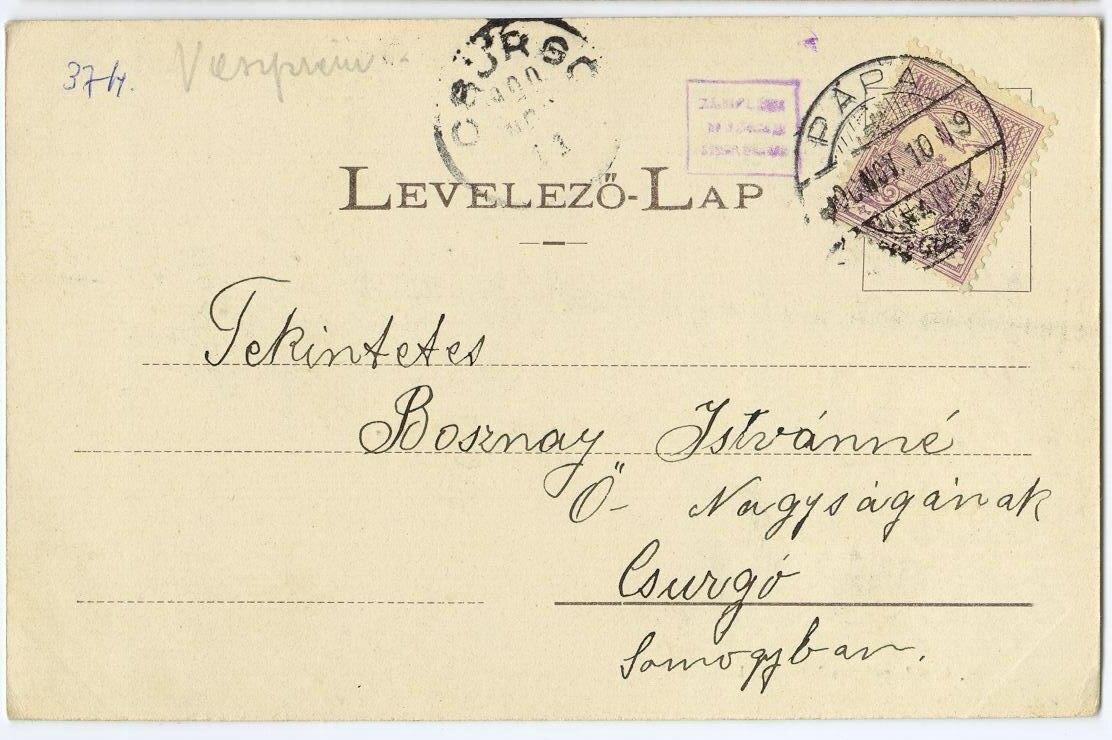 37/4.
Veszprém
CSURGÓ
PÁPA
NOV. 10
LEVELEZŐ-LAP
Tekintetes
Bosznay Istvánné
Ő Nagyságának
Csurgó
Somogyban.